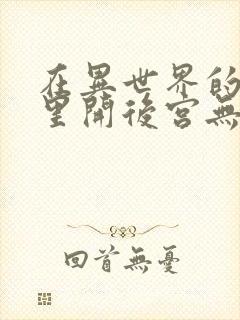 在異世界的
里開後宮無
回首無憂